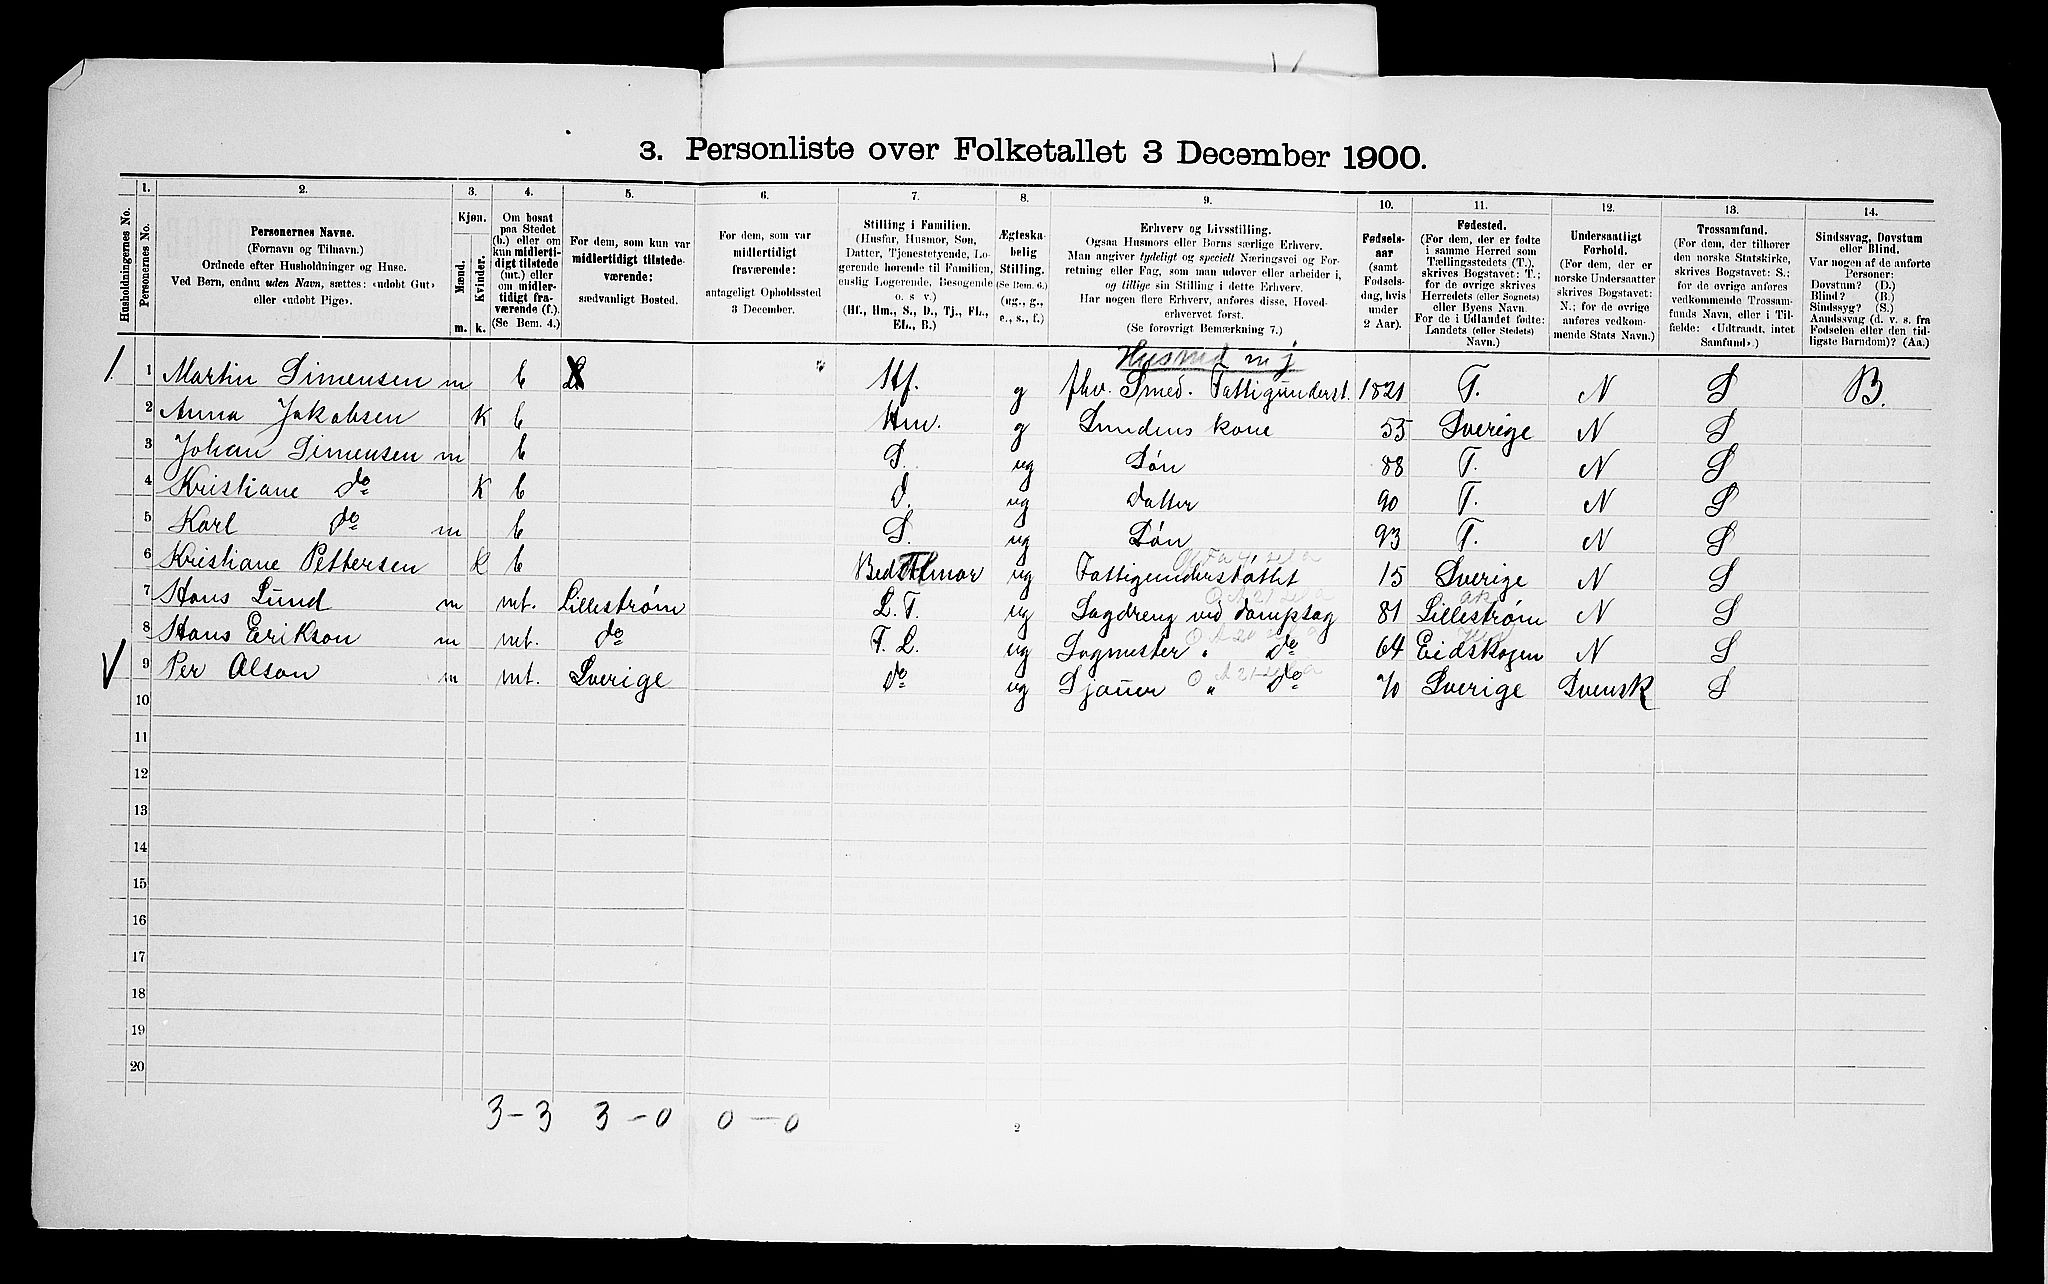 3. Personliste over Folketallet 3 December 1900.
1. 2. 3. 4. 5. 6. 7. 8. 9. 10. 11. 12. 13. 14.
Husholdningernes No.
Personernes No.
Personernes Navne.
(Fornavn og Tilnavn.)
Ordnede efter Husholdninger og Huse.
Ved Børn, endnu uden Navn, sættes: «udøbt Gut»
eller «udøbt Pige».
Kjøn.
Mænd.
Kvinder.
m. k.
Om bosat
paa Stedet
(b.) eller om
kun midlerti-
digt tilstede
(mt.) eller
om midler-
tidigt fra-
værende (f.).
(Se Bem. 4.)
For dem, som kun var
midlertidigt tilstede-
værende:
sædvanligt Bosted.
For dem, som var
midlertidigt
fraværende:
antageligt Opholdssted
3 December.
Stilling i Familien.
(Husfar, Husmor, Søn,
Datter, Tjenestetyende, Lo-
gerende hørende til Familien,
enslig Logerende, Besøgende
o. s v.)
(Hf., Hm., S., D., Tj., FL.,
EL., B.)
Ægteska-
belig
Stilling.
(Se Bem. 6.)
(ug., g.,
e., s., f.)
Erhverv og Livsstilling.
Ogsaa Husmors eller Børns særlige Erhverv.
Man angiver tydeligt og specielt Næringsvei og For-
retning eller Fag, som man udover eller arbeider i,
og tillige sin Stilling i dette Erhverv.
Har nogen flere Erhverv, anføres disse, Hoved-
erhvervet først.
(Se forøvrigt Bemærkning 7.)
Fødsels-
aar
(samt
Fødsels-
dag, hvis
under
2 Aar).
Fødested.
(For dem, der er fødte
i samme Herred som
Tællingsstedets (T.),
skrives Bogstavet: T.;
for de øvrige skrives
Herredets (eller Sognets)
eller Byens Navn.
For de i Udlandet fødte:
Landets (eller Stedets)
Navn.)
Undersaatligt
Forhold.
(For dem, der er
norske Undersaatter
skrives Bogstavet:
N.; for de øvrige
anføres vedkom-
mende Stats Navn.)
Trossamfund.
(For dem, der tilhører
den norske Statskirke,
skrives Bogstavet: S.;
for de øvrige anføres
vedkommende Trossam-
funds Navn, eller i Til-
fælde: «Udtraadt, intet
Samfund».)
Sindssvag, Døvstum
eller Blind.
Var nogen af de anførte
Personer:
Døvstum? (D.)
Blind? (B.)
Sindssyg? (S.)
Aandssvag (d. v. s. fra
Fødselen eller den tid-
ligste Barndom)? (Aa.)
Husmd m j
1 1 Martin Simensen m b Hf. g fhv. Smed. Fattigunderst. 1821 T. N S B.
2 Anna Jakobsen K b Hm. g Smedens kone 55 Sverige N S
3 Johan Simensen m b S. ug Søn 88 T. N S
4 Kristiane do K b d. ug datter 90 T. N S
5 Karl do m b S. ug Søn 93 T. N S
6 Kristiane Pettersen K b Bedstemor ug Fattigunderstøttet 15 Sverige N S
7 Hans Lund m mt. Lillestrøm L. F. ug Sagdreng ved dampsag 81 Lillestrøm N S
8 Hans Erikson m mt. do F. L. ug Sagmester " do 64 Eidskogen N S
9 Per Olson m mt. Sverige do ug Sjauer " do 70 Sverige Svensk S
10
11
12
13
14
15
16
17
18
19
20
3-3 3-0 0-0
2